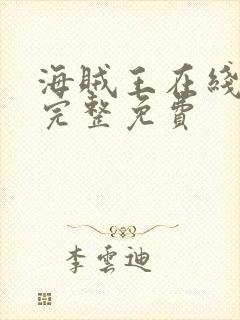 海贼王在綫
完整免費
李雲迪